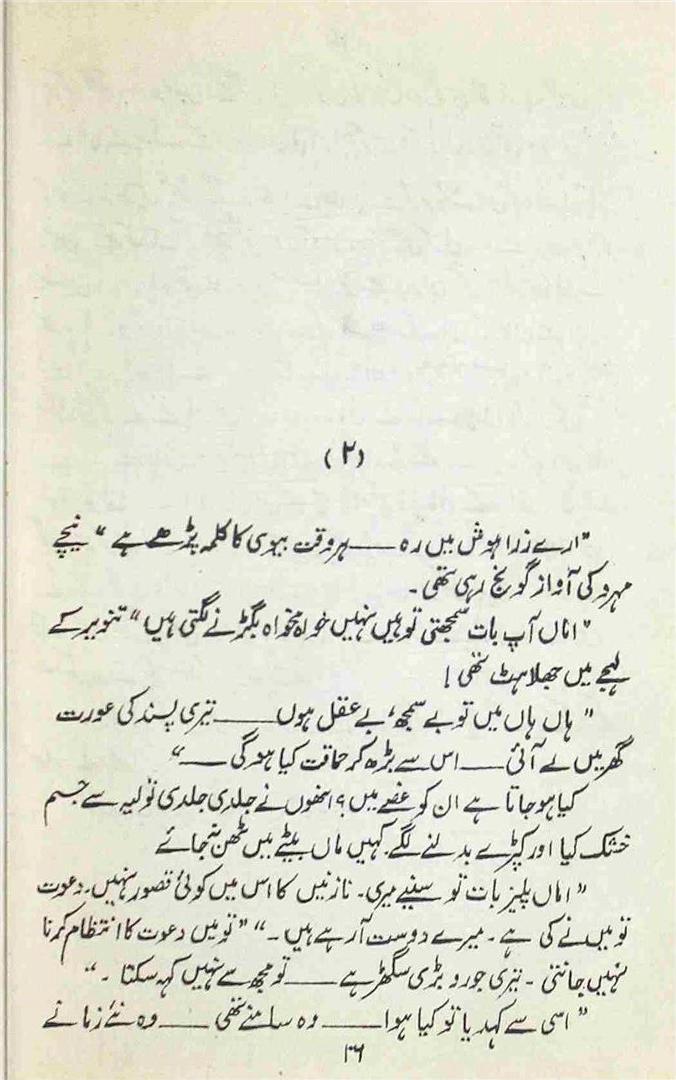 (۲)
"ارے ذرا ہوش میں رہ ــــ ہر وقت بیوی کا کلمہ پڑھے ہے" نیچے
مہرو کی آواز گونج رہی تھی۔
"اماں آپ بات سمجھتی تو ہیں نہیں خواہ مخواہ بگڑنے لگتی ہیں" تنویر کے
لہجے میں جھلاہٹ تھی!
"ہاں ہاں میں تو بے سمجھ، بے عقل ہوں ــــ تیری پسند کی عورت
گھر میں لے آئی ــــ اس سے بڑھ کر حماقت کیا ہوگی ــــ"
کیا ہو جاتا ہے ان کو غصے میں؟ انھوں نے جلدی جلدی تولیہ سے جسم
خشک کیا اور کپڑے بدلنے لگے۔ کہیں ماں بیٹے میں ٹھن نہ جائے
"اماں پلیز بات تو سنیے میری۔ نازنیں کا اس میں کوئی قصور نہیں۔ دعوت
تو میں نے کی ہے۔ میرے دوست آرہے ہیں۔" "تو میں دعوت کا انتظام کرنا
نہیں جانتی۔ تیری جورو بڑی سگھڑ ہے ــــ تو مجھ سے نہیں کہہ سکتا۔"
"اسی سے کہدیا تو کیا ہوا ــــ وہ سامنے تھی ــــ وہ نئے زمانے
۳۶